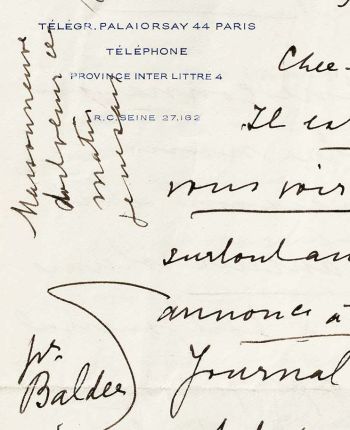 TÉLÉGR. PALAIORSAY 44 PARIS
TÉLÉPHONE
PROVINCE INTER LITTRE 4
R.C. SEINE 27.162
Maisonneuve
doit venir ce
matin
Chee-
Il es
vous voir
surtout au
annonce à
Journal
pr.
Balder